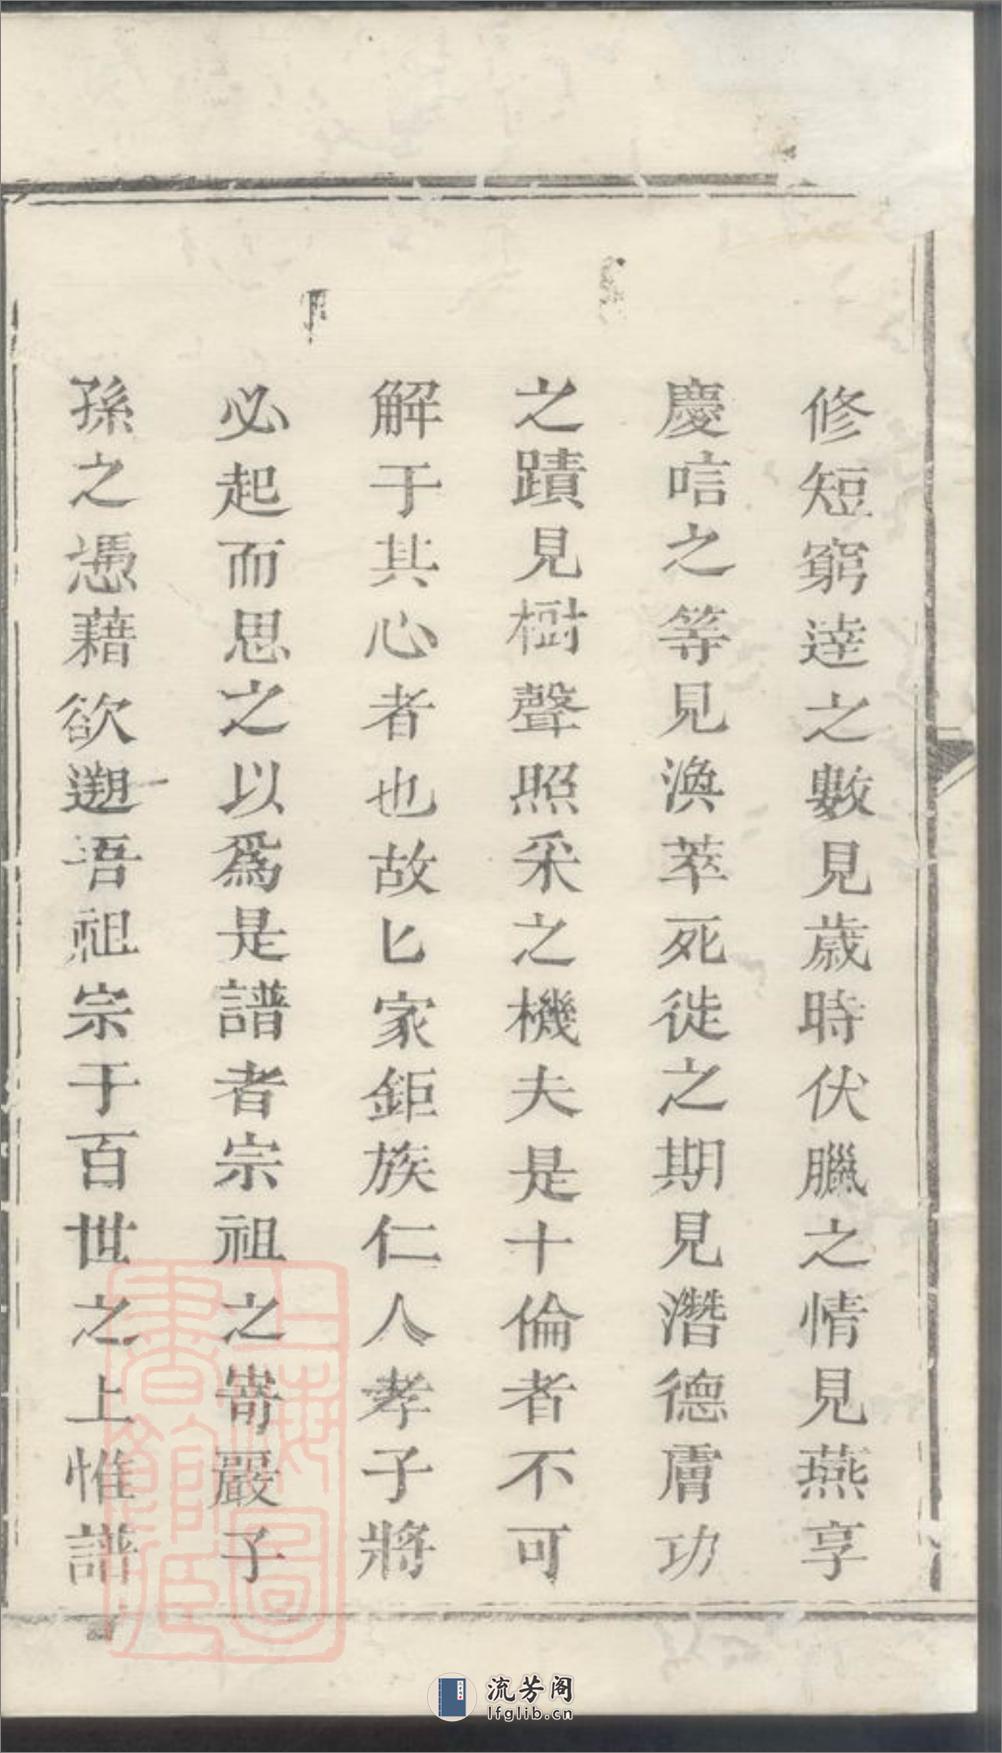 修短窮達之數見歲時伏臘之情見燕享
慶唁之等見渙萃死徙之期見潛德膚功
之蹟見樹聲照采之機夫是十倫者不可
解于其心者也故匕家鉅族仁人孝子將
必起而思之以爲是譜者宗祖之嵜嚴子
孫之憑藉欲遡吾祖宗于百世之上惟譜
上海圖書館藏
流芳阁
lfglib.cn